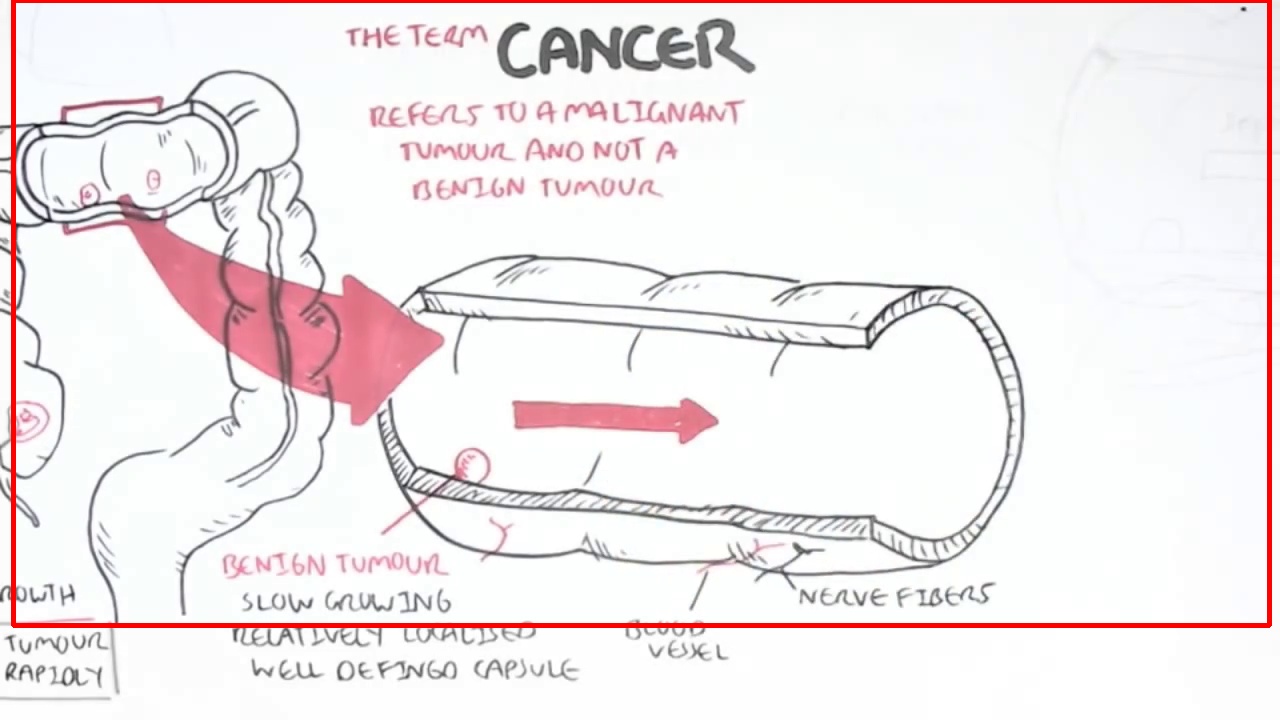 THE TERM CANCER
REFERS TO A MALIGNANT
TUMOUR AND NOT A
BENIGN TUMOUR
BENIGN TUMOUR
SLOW GROWING
RELATIVELY LOCALISED
WELL DEFINED CAPSULE
NERVE FIBERS
BLOOD
VESSEL
ROWTH
TUMOUR
RAPIDLY